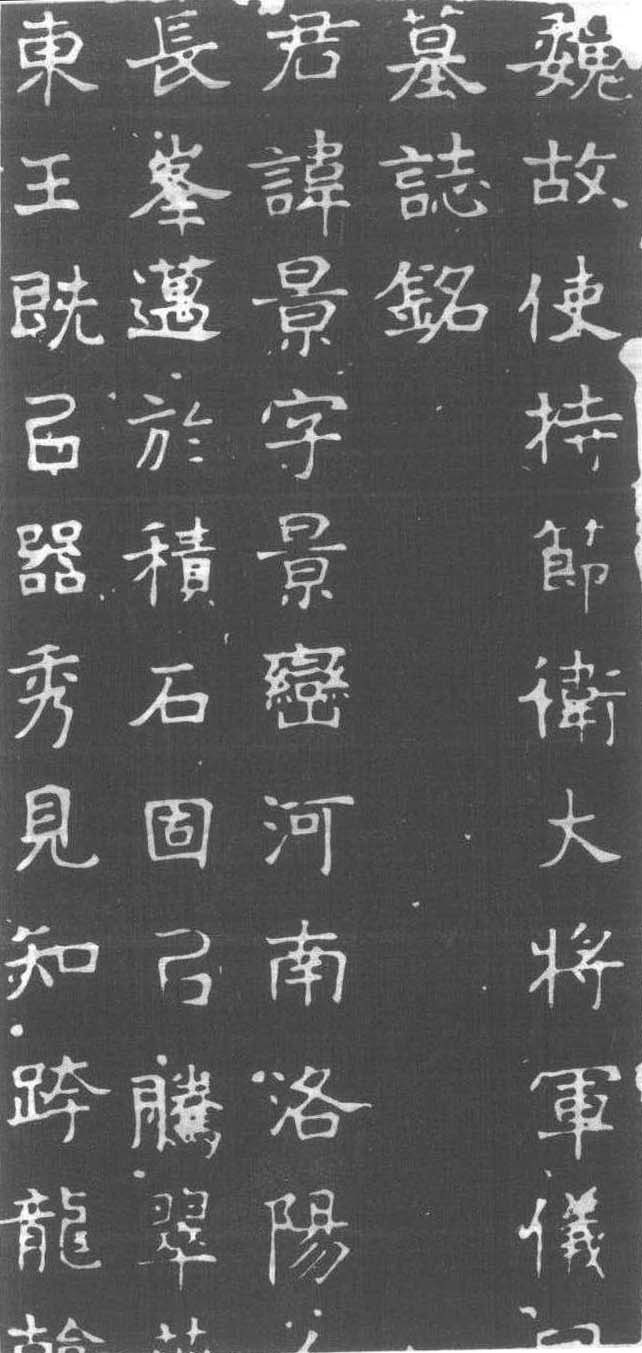 魏故使持節衛大將軍儀
墓誌銘
君諱景字景巒河南洛陽
長峯邁於積石固㠯騰翠
東王既㠯器秀見知跨龍